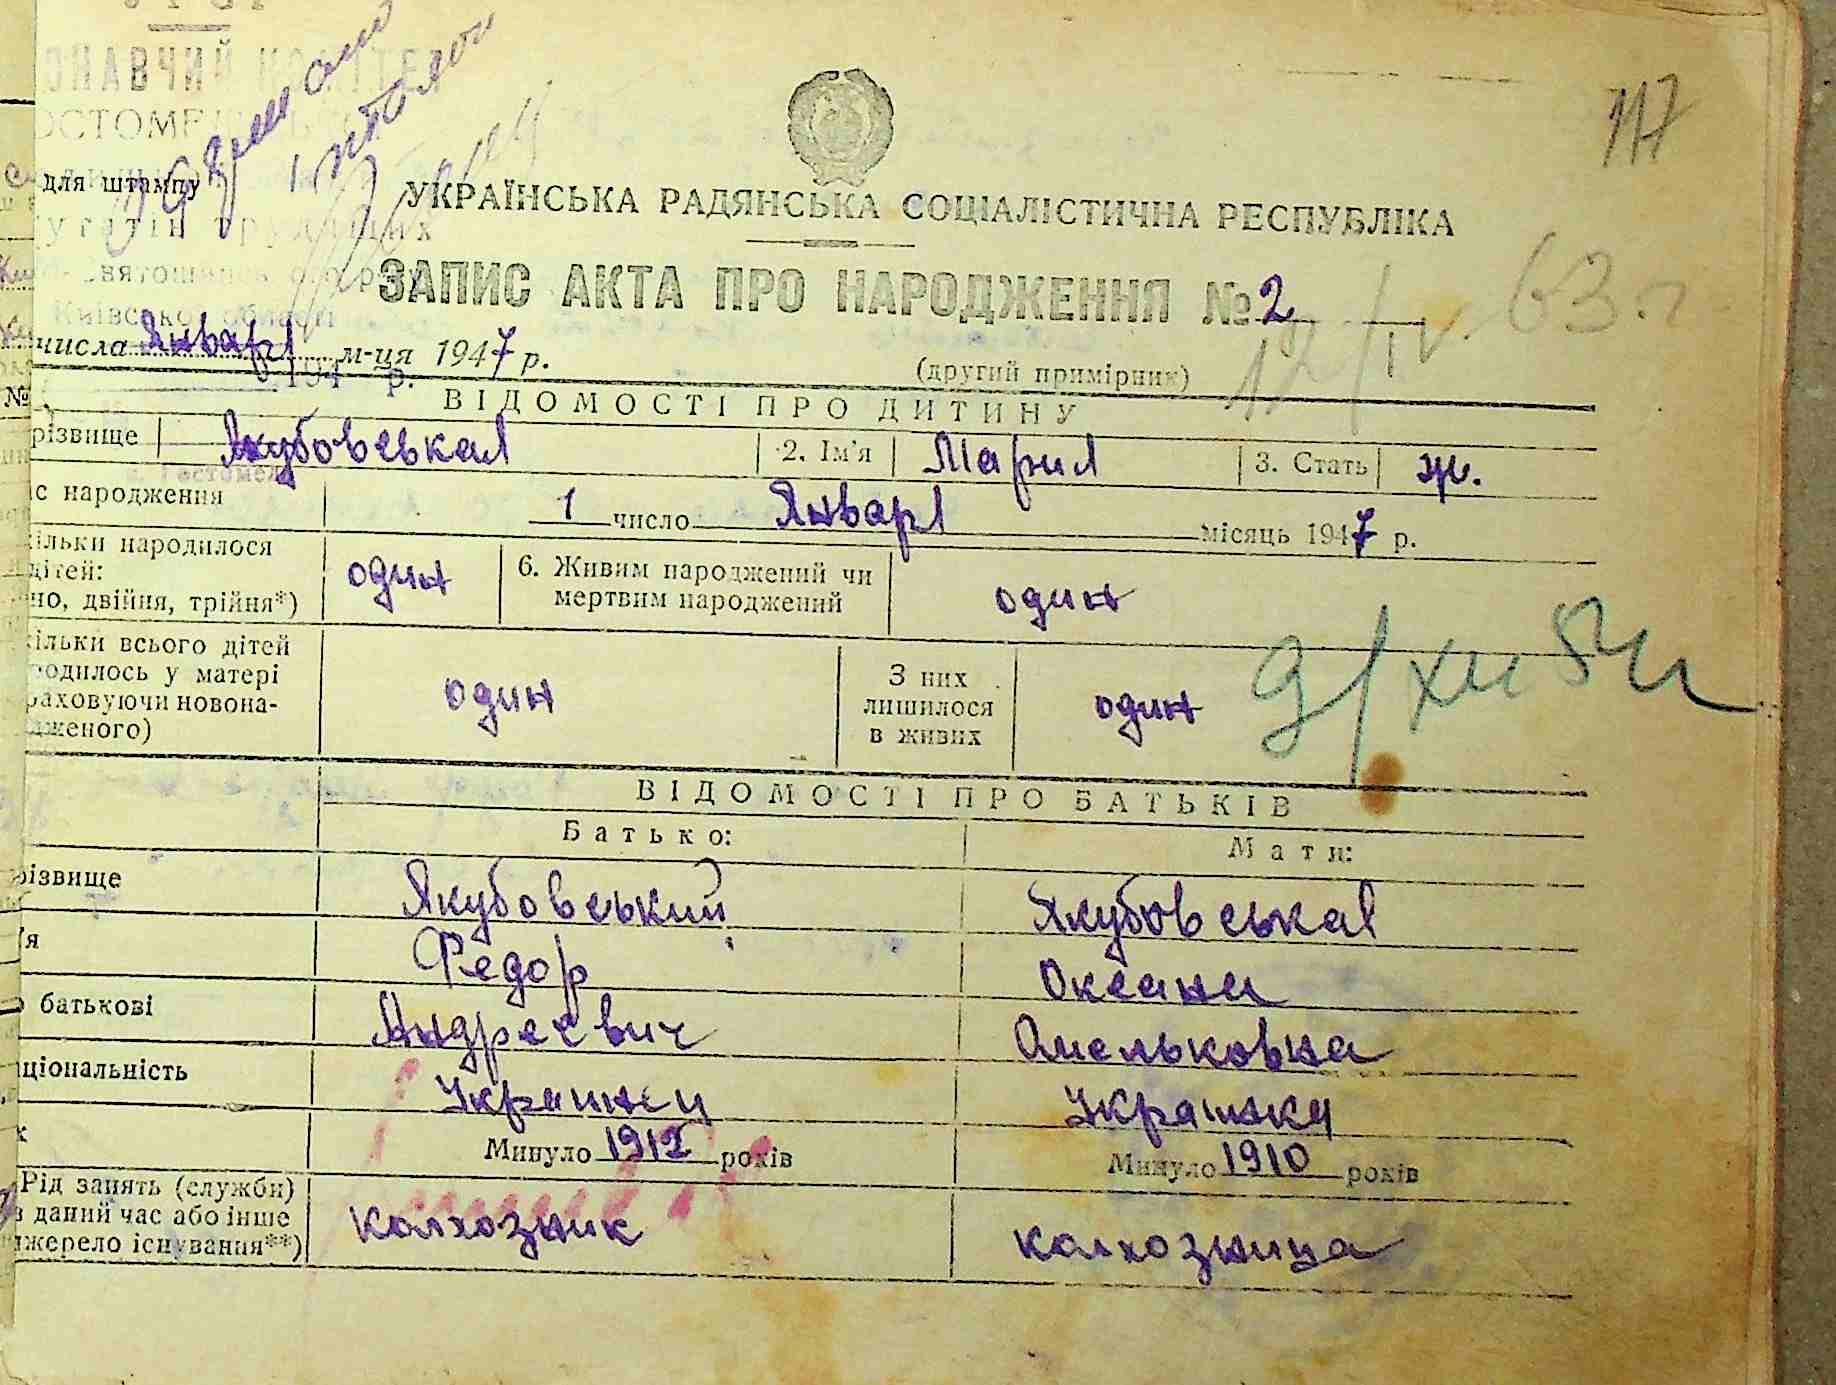 УРСР
ОНАВЧИЙ КОМІТЕТ
ОСТОМЕЛ
для штампу
утатів трудящих
Святошинс ого р
Київсько області
117
УКРАЇНСЬКА РАДЯНСЬКА СОЦІАЛІСТИЧНА РЕСПУБЛІКА
ЗАПИС АКТА ПРО НАРОДЖЕННЯ № 2
12/IV. 63 г
числа Января м-ця 1947 р.
(другий примірник)
194 р.
№
ВІДОМОСТІ ПРО ДИТИНУ
різвище Якубовськая 2. Ім'я Мария 3. Стать ж.
Гостомел
с народження 1 число Января місяць 1947 р.
ільки народилося
дітей:
но, двійня, трійня*) один 6. Живим народжений чи
мертвим народжений один
ільки всього дітей
родилось у матері
раховуючи новона-
дженого) один З них
лишилося
в живих один
ВІДОМОСТІ ПРО БАТЬКІВ
Батько: Мати:
різвище Якубовський Якубовськая
'я Федор Оксана
о батькові Андреевич Омельковна
ціональність Украинец Украинка
к Минуло 1912 років Минуло 1910 років
Рід занять (служби)
в даний час або інше
джерело існування**) колхозник колхозница